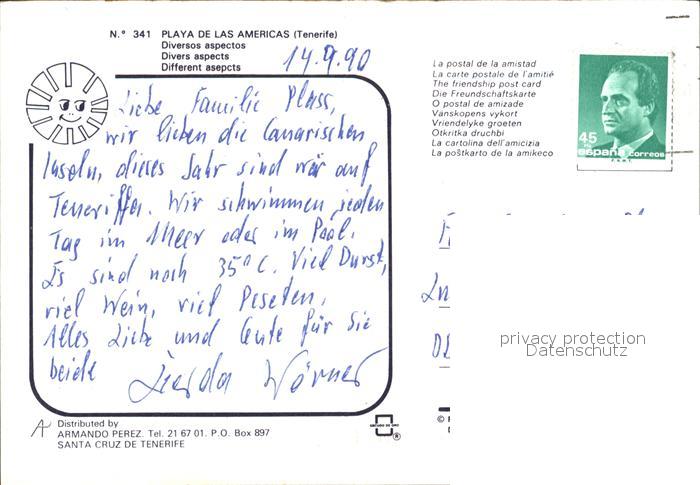 N.º 341 PLAYA DE LAS AMERICAS (Tenerife)
Diversos aspectos
Divers aspects
Different asepcts
14.9.90
Liebe Familie Plass,
wir lieben die Canarischen
Inseln, dieses Jahr sind wir auf
Teneriffa. Wir schwimmen jeden
Tag im Meer oder im Pool.
Es sind noch 35° C. Viel Durst,
viel Wein, viel Peseten.
Alles Liebe und Gute für Sie
beide
Gerda Wörner
Distributed by
ARMANDO PEREZ. Tel. 21 67 01. P.O. Box 897
SANTA CRUZ DE TENERIFE
La postal de la amistad
La carte postale de l'amitié
The friendship post card
Die Freundschaftskarte
O postal de amizade
Vänskapens vykort
Vriendelyke groeten
Otkritka druchbi
La cartolina dell'amicizia
La poŝtkarto de la amikeco
45
España correos
privacy protection
Datenschutz